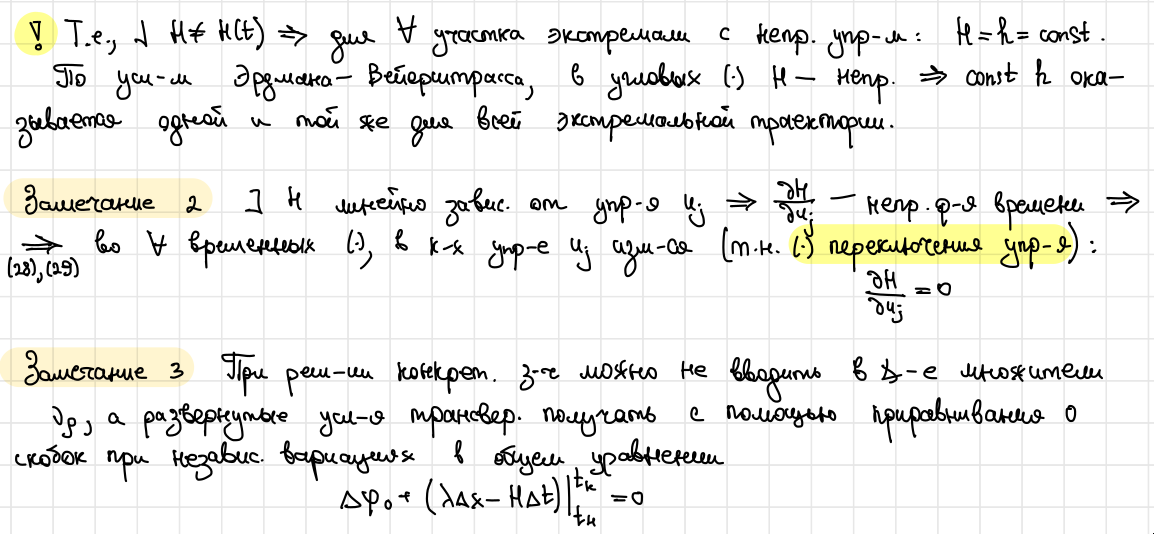 ! Т.е., ] H ≠ H(t) ⇒ для ∀ участка экстремали с непр. упр-м: H = h = const.
По усл-м Эрдмана – Вейерштрасса, в угловых (·) H — непр. ⇒ const h ока-
зывается одной и той же для всей экстремальной траектории.
Замечание 2 ] H линейно завис. от упр-я u_j ⇒ ∂H/∂u_j — непр. ф-я времени ⇒
⇒ во ∀ временных (·), в к-х упр-е u_j изм-ся (т.н. (·) переключения упр-я):
(28),(29)
∂H/∂u_j = 0
Замечание 3 При реш-ии конкрет. з-ч можно не вводить в -е множители
ν_ρ, а развернутые усл-я трансвер. получать с помощью приравнивания 0
скобок при независ. вариациях в общем уравнении
Δφ₀ + (λΔx − HΔt)|_{t_н}^{t_к} = 0